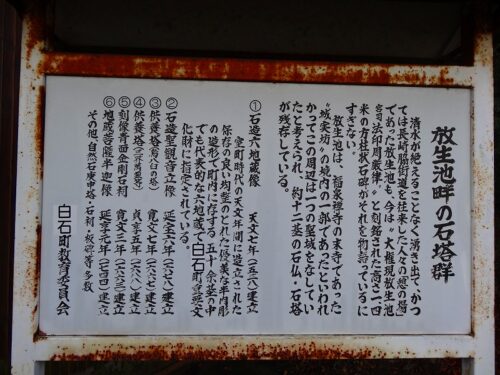 放生池畔の石塔群
清水が絶えることなく湧き出て、かつ
ては長崎脇街道を往来した人々の憩の場
であった放生池も、今は〝大権現放生池
寄司法印周慶律〟と刻銘された高さ二・四
米の方柱状石碑がそれを物語っているに
すぎない。
放生池は、稲家穏寺の末寺であった
〝城実坊〟の境内の一部であったといわれ
かってこの周辺は一つの聖域をなしてい
たと考えられ、約十二基の石仏・石塔
が残存している。
①石造六地蔵像 天文七年(一五三八)建立
室町時代の天文年間に造立された
保存の良い均整のとれた優美な半肉彫
の造形で町内に存する五十余基の中
でも代表的な六地蔵で白石町重要文
化財に指定されている。
②石造聖観音立像 延宝六年(一六七八)建立
③供養塔 寛文七年(一六六七)建立
④供養塔 貞享五年(一六八八)建立
⑤刻像青面金剛石祠 寛文三年(一六六三)建立
⑥地蔵菩薩半迦像 延享元年(一七四四)建立
その他、自然石庚申塔・石祠・板碑等多数
白石町教育委員会